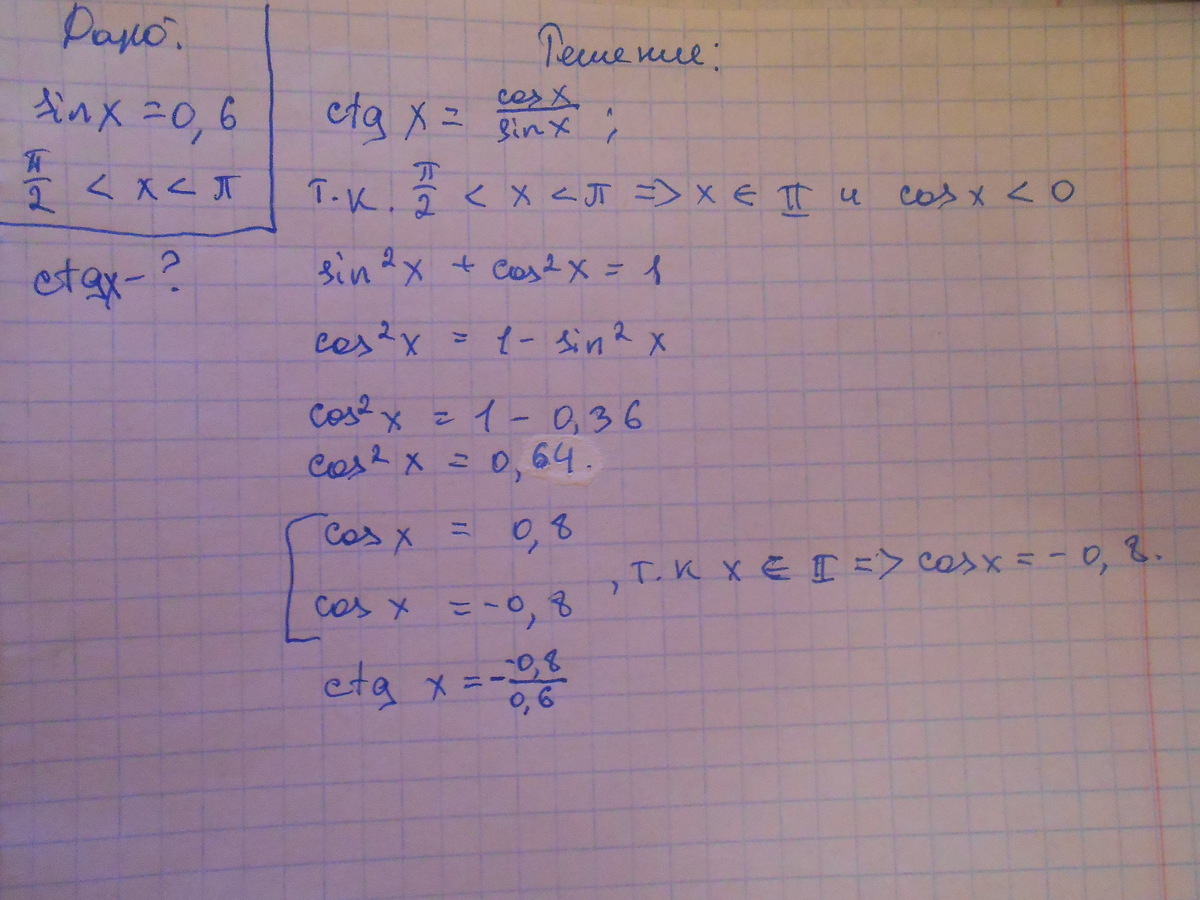 Дано:
sin x = 0,6
π/2 < x < π
ctgx - ?
Решение:
ctg x = cos x / sin x ;
т.к. π/2 < x < π => x ∈ II и cos x < 0
sin²x + cos²x = 1
cos²x = 1 - sin² x
cos²x = 1 - 0,36
cos² x = 0,64.
[ cos x = 0,8
cos x = -0,8
, т.к x ∈ II => cos x = - 0,8.
ctg x = - -0,8 / 0,6